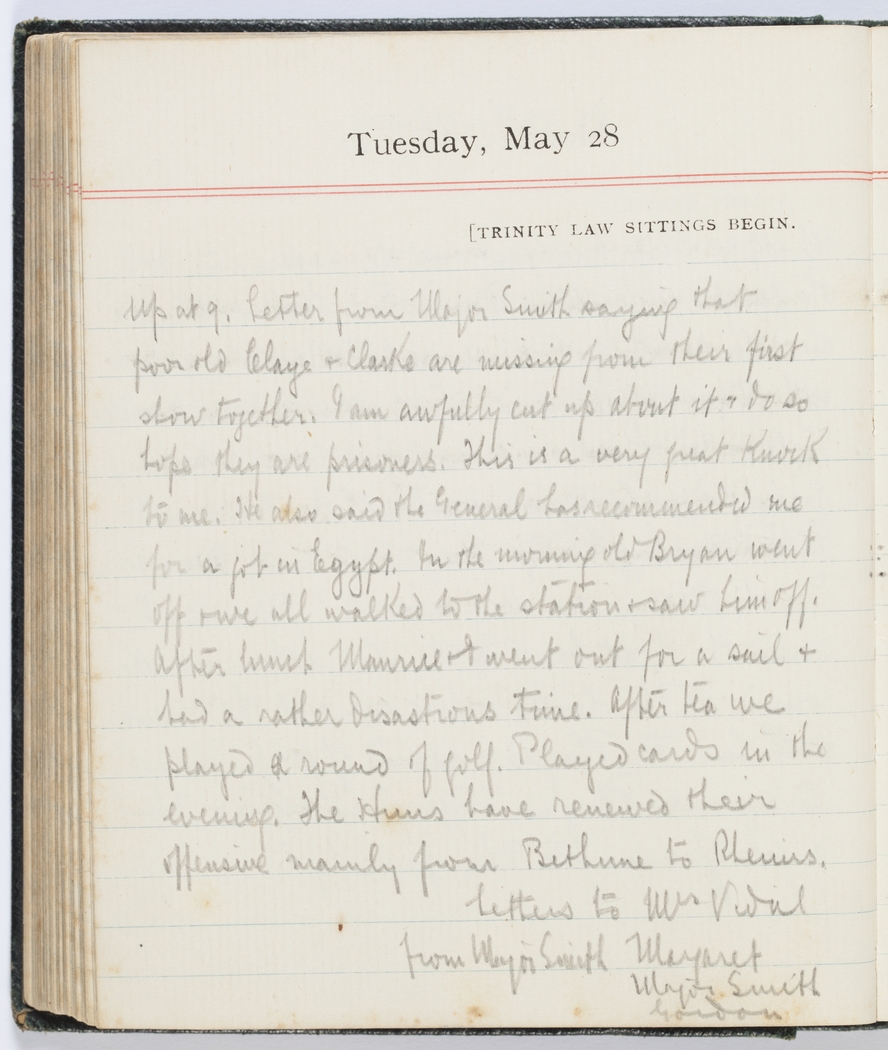 Tuesday, May 28
[TRINITY LAW SITTINGS BEGIN.
Up at 9. Letter from Major Smith saying that
poor old Claye + Clarke are missing from their first
show together. I am awfully cut up about it + do so
hope they are prisoners. This is a very great knock
to me. He also said the General has recommended me
for a job in Egypt. In the morning old Bryan went
off + we all walked to the station + saw him off.
After lunch Maurice + I went out for a sail +
had a rather disastrous time. After tea we
played a round of golf. Played cards in the
evening. The Huns have renewed their
offensive mainly from Bethune to Rheims.
Letters to Mrs Vidal
from Major Smith Margaret
Major Smith
Gordon